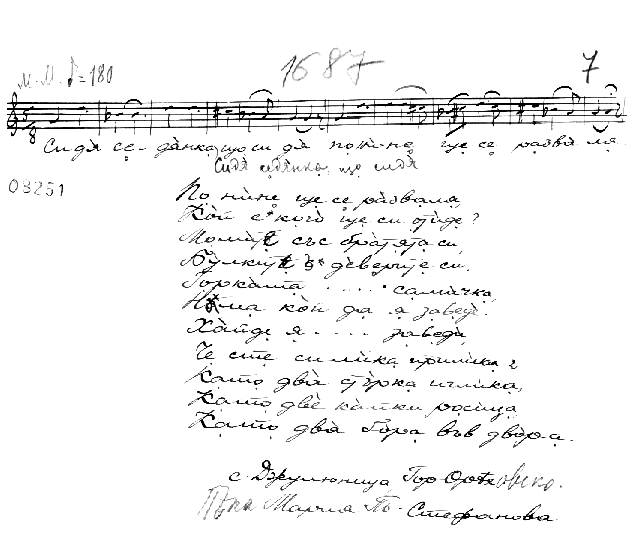 1687
7
М. М. ♪=180
Сидя се- дянка, що си дя по ни не ще се разва ля.
Сидя седянка, що сидя
03251
По нине ще се разваля,
Кой с кого ще си отиде?
Момите със братята си,
Булките с деверите си.
Горката ..... самичка,
Няма кой да я заведе.
Хайде я .... заведи,
Че сте си лика прилика
Като два стърка иглика,
Като две китки росица,
Като два бора във двора.
с. Джулюница Гор Орѣховско.
Пѣла Мария П. Стефанова